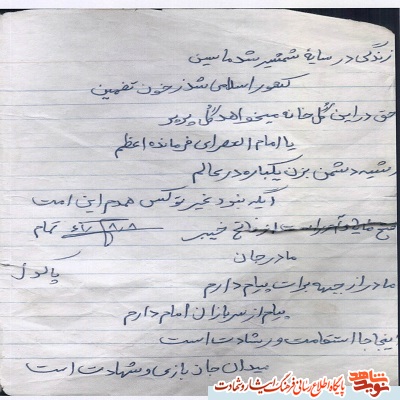 زندگی در سایهٔ شمشیر شد ماسین
کشور اسلامی شد ز خون تضمین
حق در این گلخانه میخواهد گل پرپر
یا امام العصر ای فرمانده اعظم
ریشه دشمن بزن یکباره در عالم
نبود غیر تو کس همدم این امت
فتح خیبر تمام
مادر جان
مادر از جبهه برات پیام دارم
پیام از سربازان امام دارم
اینجا استقامت و رشادت است
میدان جان بازی و شهادت است
نوید شاهد
پایگاه اطلاع رسانی فرهنگ ایثار و شهادت